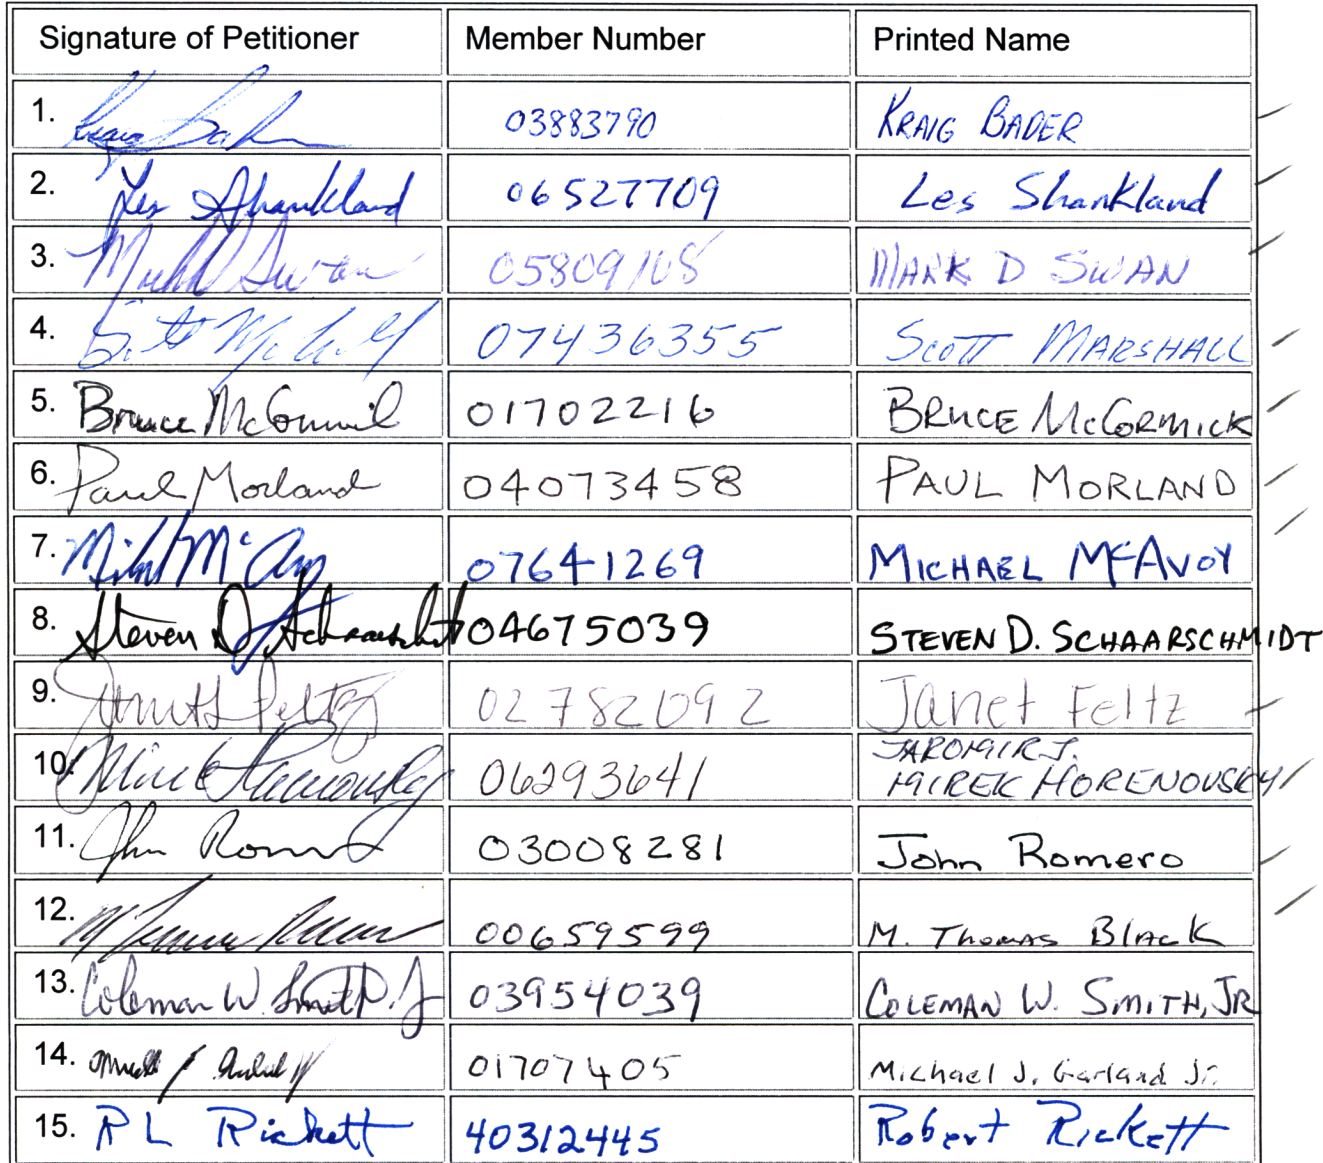 Signature of Petitioner Member Number Printed Name
1. Kraig Bader 03883790 KRAIG BADER
2. Les Shankland 06527709 Les Shankland
3. Mark D Swan 05809108 MARK D SWAN
4. Scott 07436355 SCOTT MARSHALL
5. Bruce McCormick 01702216 BRUCE McCORMICK
6. Paul Morland 04073458 PAUL MORLAND
7. McAvoy 07641269 MICHAEL McAVOY
8. Steven D Schaarschmidt 04675039 STEVEN D. SCHAARSCHMIDT
9. Janet Feltz 02782092 Janet Feltz
10. Mirek Horenovsky 06293641 JAROMIR J.
MIREK HORENOVSKY
11. John Romero 03008281 John Romero
12. 00659599 M. Thomas Black
13. Coleman W. Smith Jr 03954039 COLEMAN W. SMITH, JR
14. 01707405 Michael J. Garland Jr.
15. R L Rickett 40312445 Robert Rickett